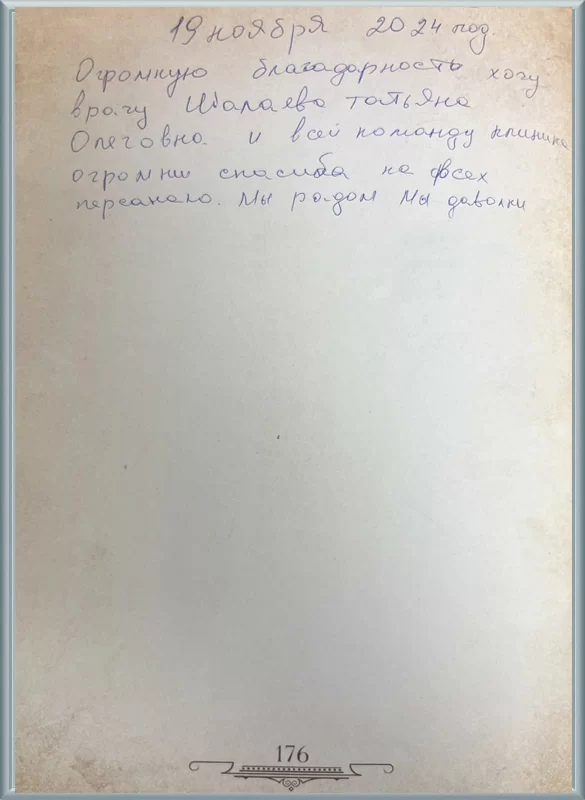 19 ноября 2024 год.
Огромную благадарность хочу
врачу Шалаева Татьяна
Олеговна. и всей команду клиника
огромние спасиба на всех
персанало. Мы радом Мы даволни
176